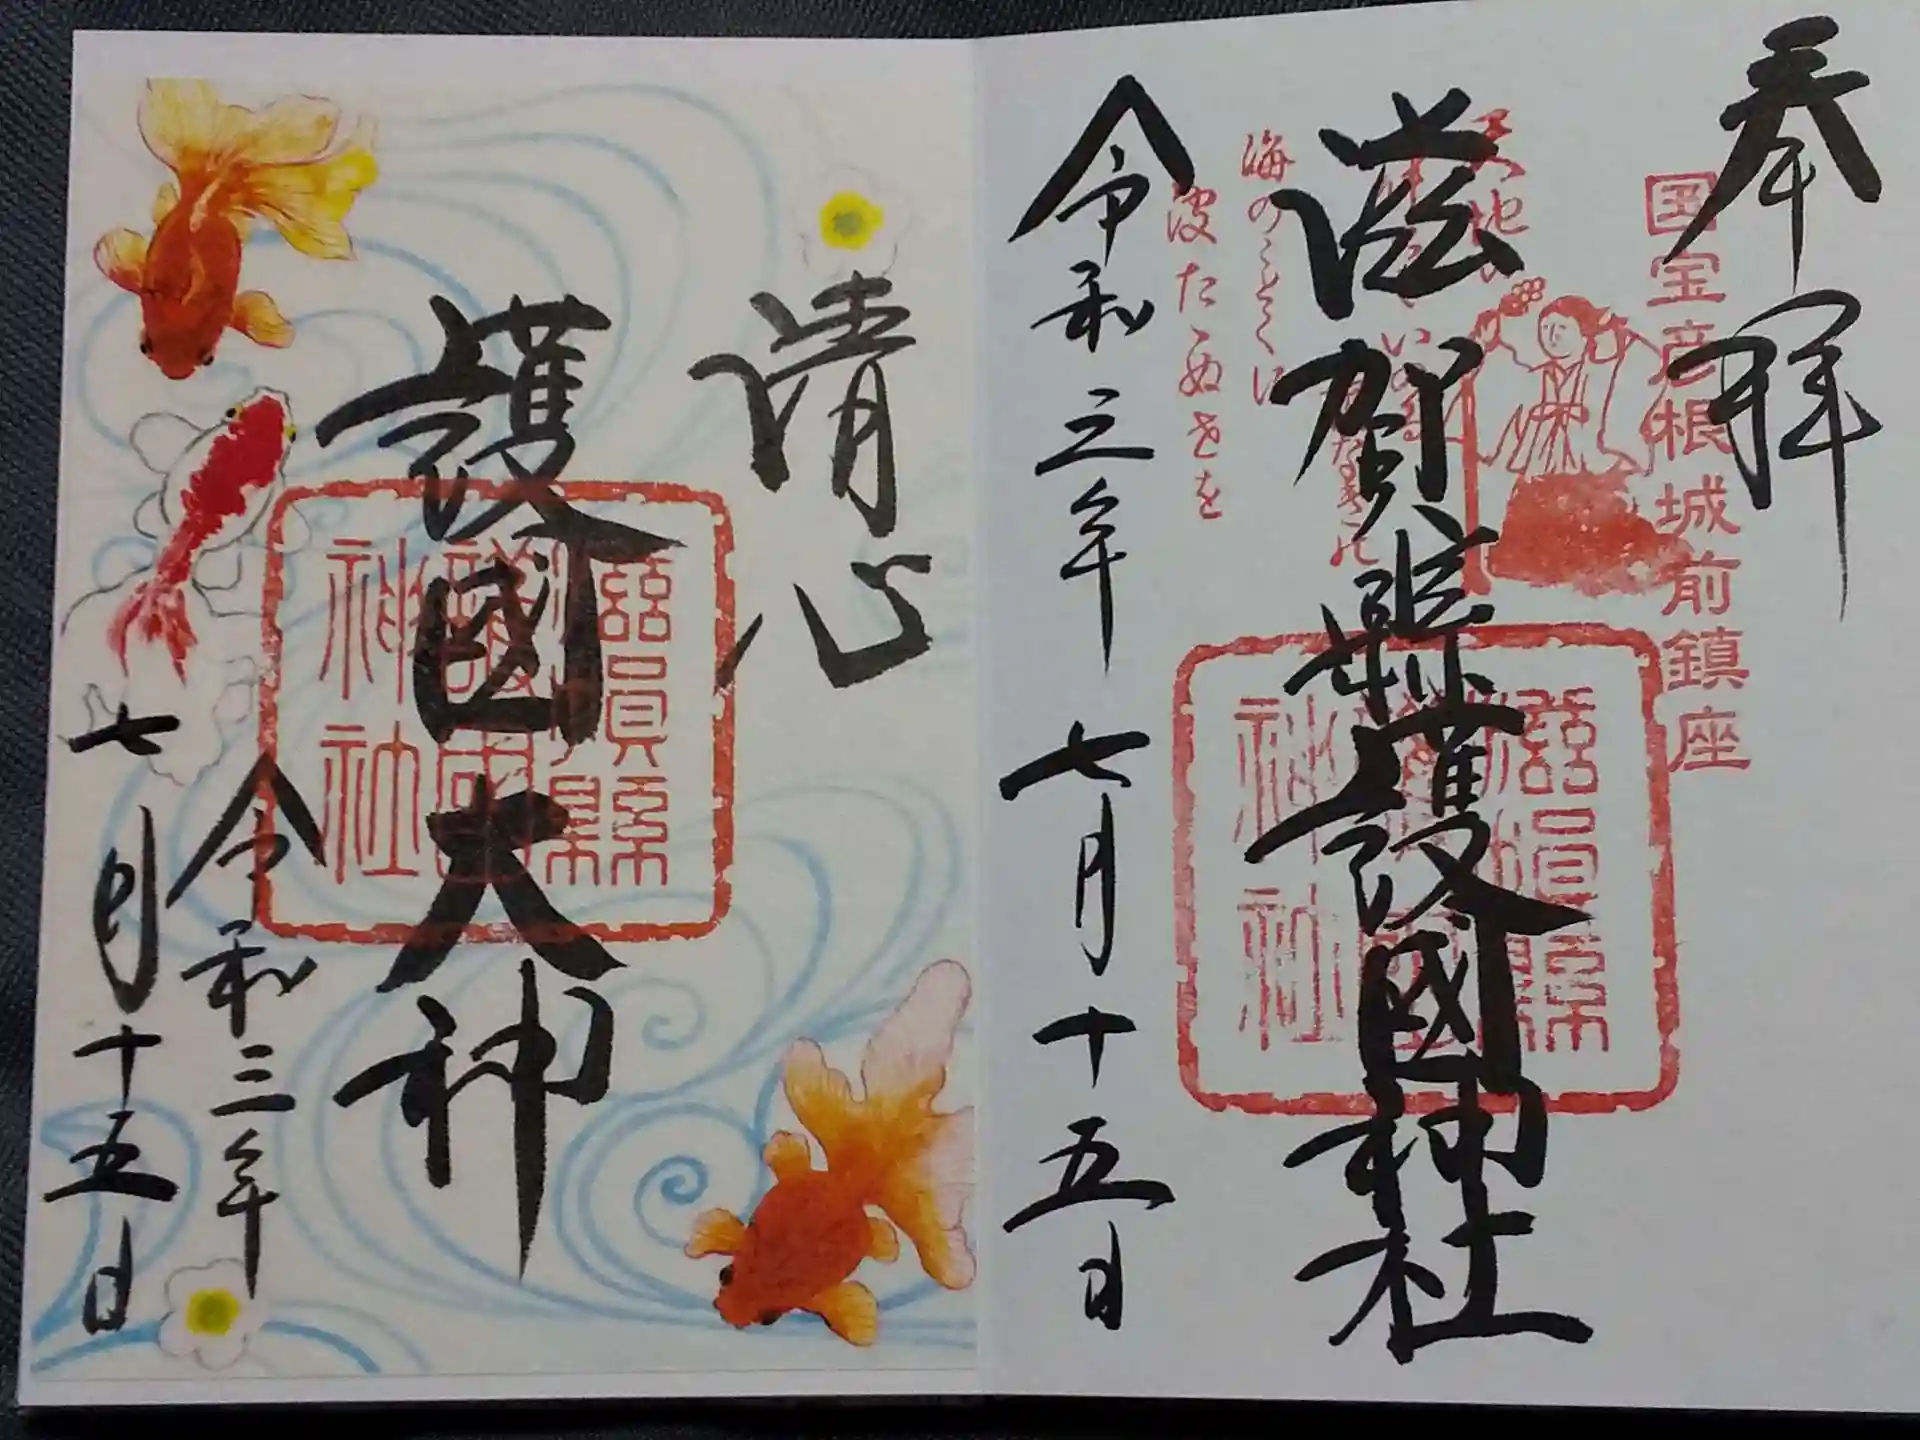 奉拝
国宝彦根城前鎮座
滋賀縣護國神社
海のことくに
波たゝぬ世を
令和三年七月十五日
滋賀縣
護國
神社
清心
護國大神
令和三年
七月十五日
滋賀縣
護國
神社